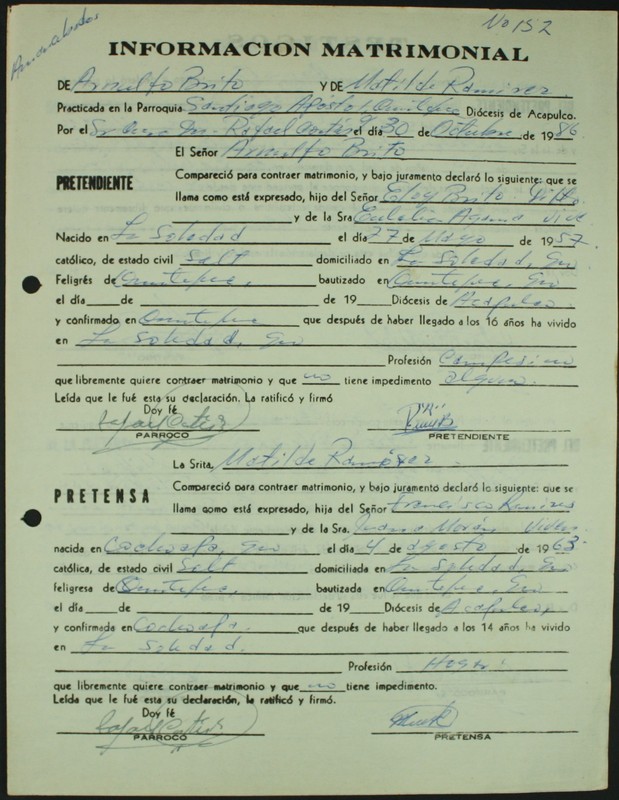 No 152
INFORMACION MATRIMONIAL
DE Arnulfo Brito Y DE Matilde Ramirez
Practicada en la Parroquia Santiago Apóstol Diócesis de Acapulco.
Por el Sr Cura Rafael el día 30 de Octubre de 1986
El Señor Arnulfo Brito
PRETENDIENTE
Compareció para contraer matrimonio, y bajo juramento declaró lo siguiente: que se
llama como está expresado, hijo del Señor Eloy Brito
y de la Sra. Eulalia
Nacido en La Soledad el día 27 de Mayo de 1957.
católico, de estado civil Solt domiciliado en La Soledad, Gro
Feligrés de bautizado en Gro
el día de de 19 Diócesis de Acapulco.
y confirmado en que después de haber llegado a los 16 años ha vivido
en La Soledad, Gro
Profesión Campesino
que libremente quiere contraer matrimonio y que no tiene impedimento alguno.
Leída que le fué esta su declaración. La ratificó y firmó
Doy fé
PARROCO
PRETENDIENTE
La Srita. Matilde Ramírez
PRETENSA
Compareció para contraer matrimonio, y bajo juramento declaró lo siguiente: que se
llama como está expresado, hija del Señor Francisco Ramirez
y de la Sra. Juana Morán
nacida en Cochoapa, Gro el día 4 de agosto de 1963.
católica, de estado civil Solt domiciliada en La Soledad, Gro
feligresa de bautizada en Gro
el día de de 19 Diócesis de Acapulco,
y confirmada en Cochoapa. que después de haber llegado a los 14 años ha vivido
en La Soledad.
Profesión Hogar.
que libremente quiere contraer matrimonio y que no tiene impedimento.
Leída que le fué esta su declaración, la ratificó y firmó.
Doy fé
PARROCO
PRETENSA